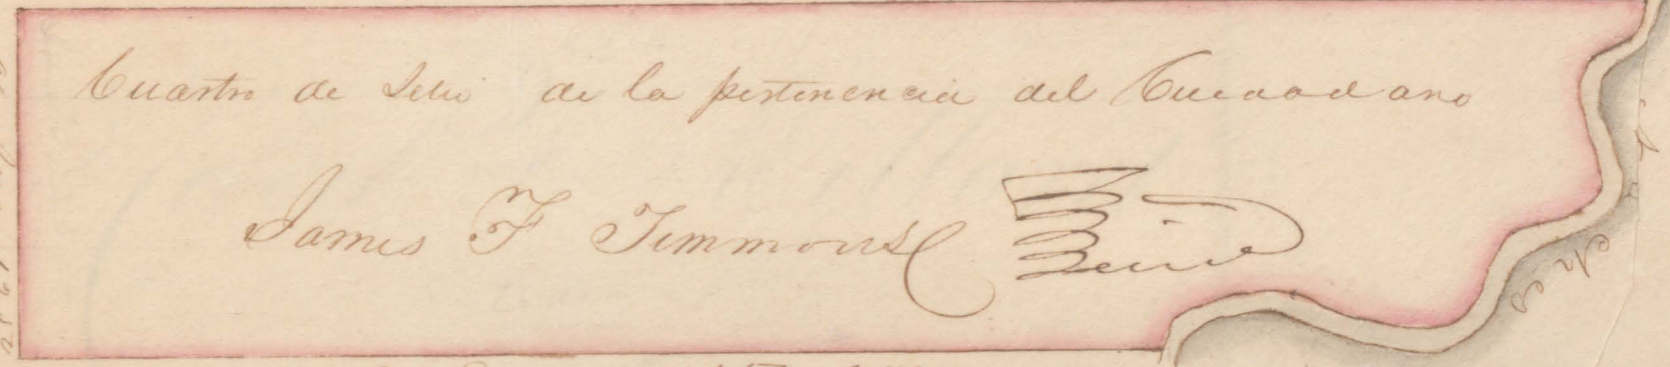 Cuarto de Sitio de la pertenencia del Ciudadano
James F Timmons